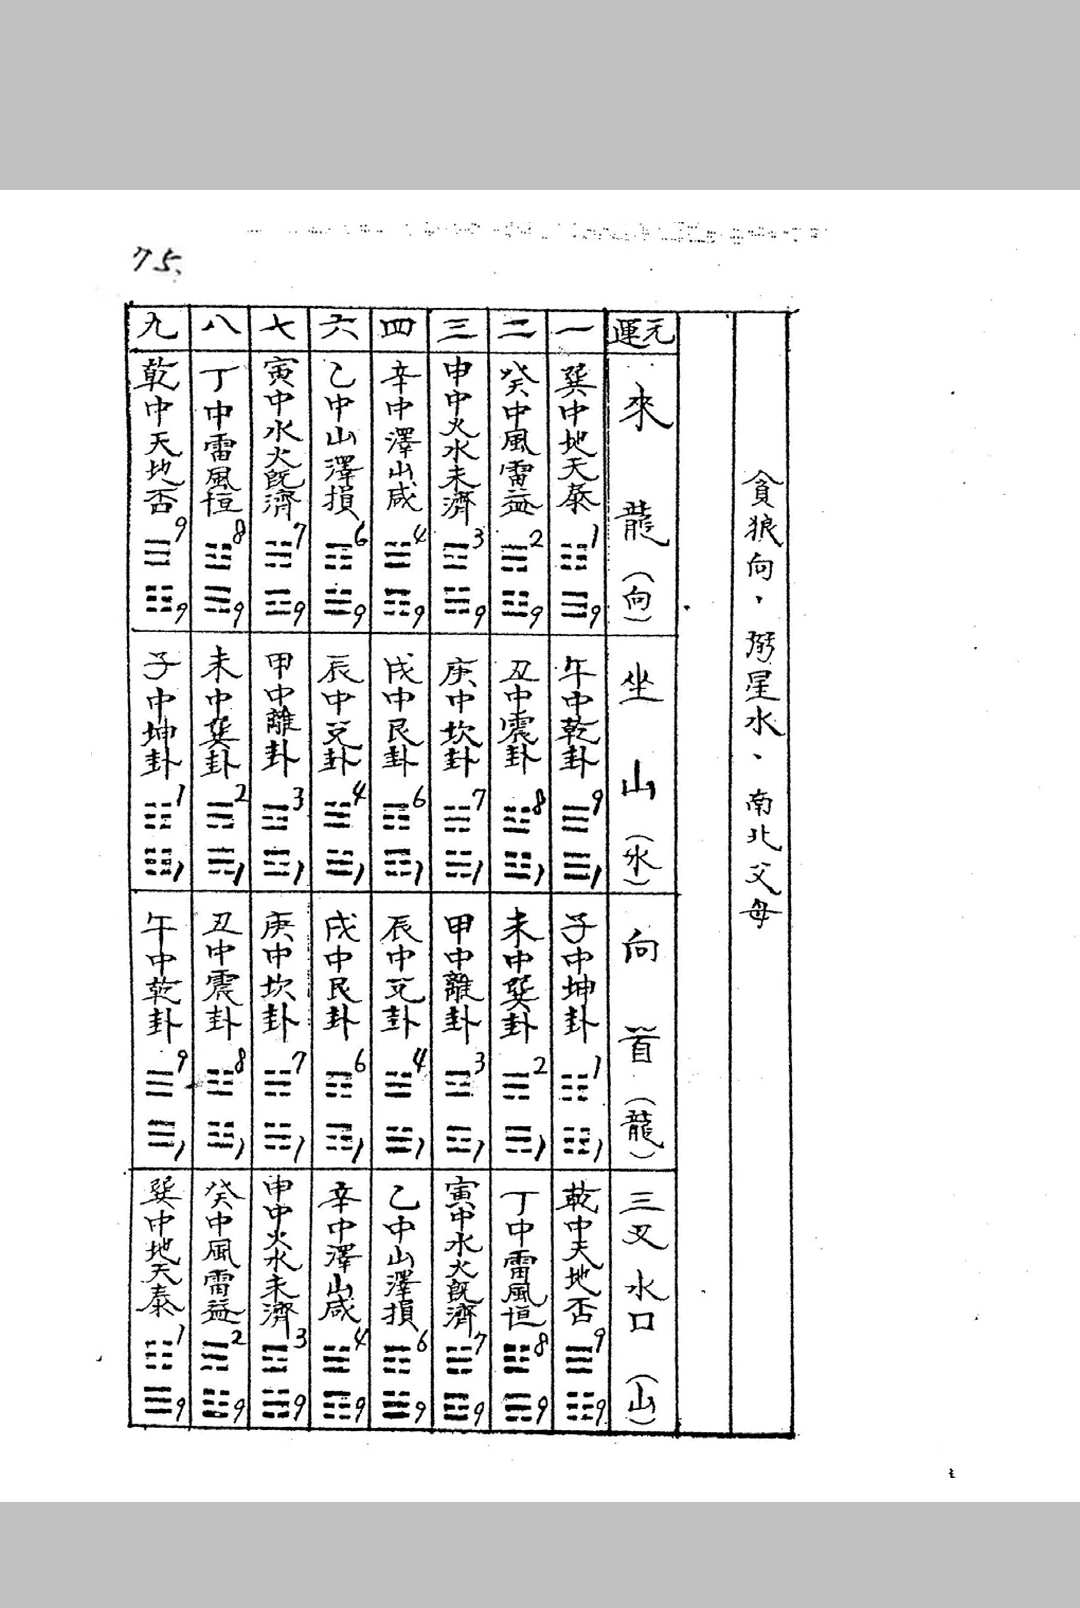 75.
貪狼向，弼星水、南北父母
元運
來龍（向）
坐山（水）
向首（龍）
三叉水口（山）
一
巽中地天泰
1
9
午中乾卦
9
1
子中坤卦
1
1
乾中天地否
9
9
二
癸中風雷益
2
9
丑中震卦
8
1
未中巽卦
2
1
丁中雷風恒
8
9
三
申中火水未濟
3
9
庚中坎卦
7
1
甲中離卦
3
1
寅中水火既濟
7
9
四
辛中澤山咸
4
9
戌中艮卦
6
1
辰中兌卦
4
1
乙中山澤損
6
9
六
乙中山澤損
6
9
辰中兌卦
4
1
戌中艮卦
6
1
辛中澤山咸
4
9
七
寅中水火既濟
7
9
甲中離卦
3
1
庚中坎卦
7
1
申中火水未濟
3
9
八
丁中雷風恒
8
9
未中巽卦
2
1
丑中震卦
8
1
癸中風雷益
2
9
九
乾中天地否
9
9
子中坤卦
1
1
午中乾卦
9
1
巽中地天泰
1
9